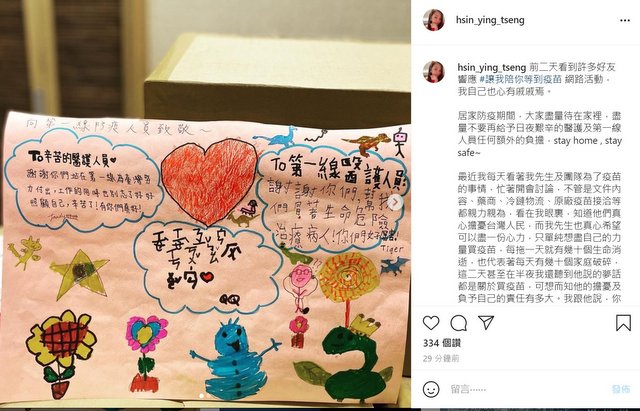 向第一線防疫人員致敬～
To辛苦的醫護人員♥
謝謝你們站在第一線為臺灣努
力付出,工作的同時也別忘了好好
照顧自己,辛苦了!有你們真好!
To第一線醫護人員
謝謝你們,常
們冒著生命危險
治療病人!你們
Tiger
QQ
hsin_ying_tseng
hsin_ying_tseng 前二天看到許多好友
響應 #讓我陪你等到疫苗 網路活動，
我自己也心有戚戚焉。
居家防疫期間，大家盡量待在家裡，盡
量不要再給予日夜艱辛的醫護及第一線
人員任何額外的負擔，stay home , stay
safe~
最近我每天看著我先生及團隊為了疫苗
的事情，忙著開會討論，不管是文件內
容、藥商、冷鏈物流、原廠疫苗接洽等
都親力親為，看在我眼裏，知道他們真
心擔憂台灣人民，而我先生也真心希望
可以盡一份心力，只單純想盡自己的力
量買疫苗，每拖一天就有幾十個生命消
逝，也代表著每天有幾十個家庭破碎，
這二天甚至在半夜我還聽到他說的夢話
都是關於買疫苗，可想而知他的擔憂及
負予自己的責任有多大。我跟他說，你
334 個讚
29 分鐘前
留言……
發佈